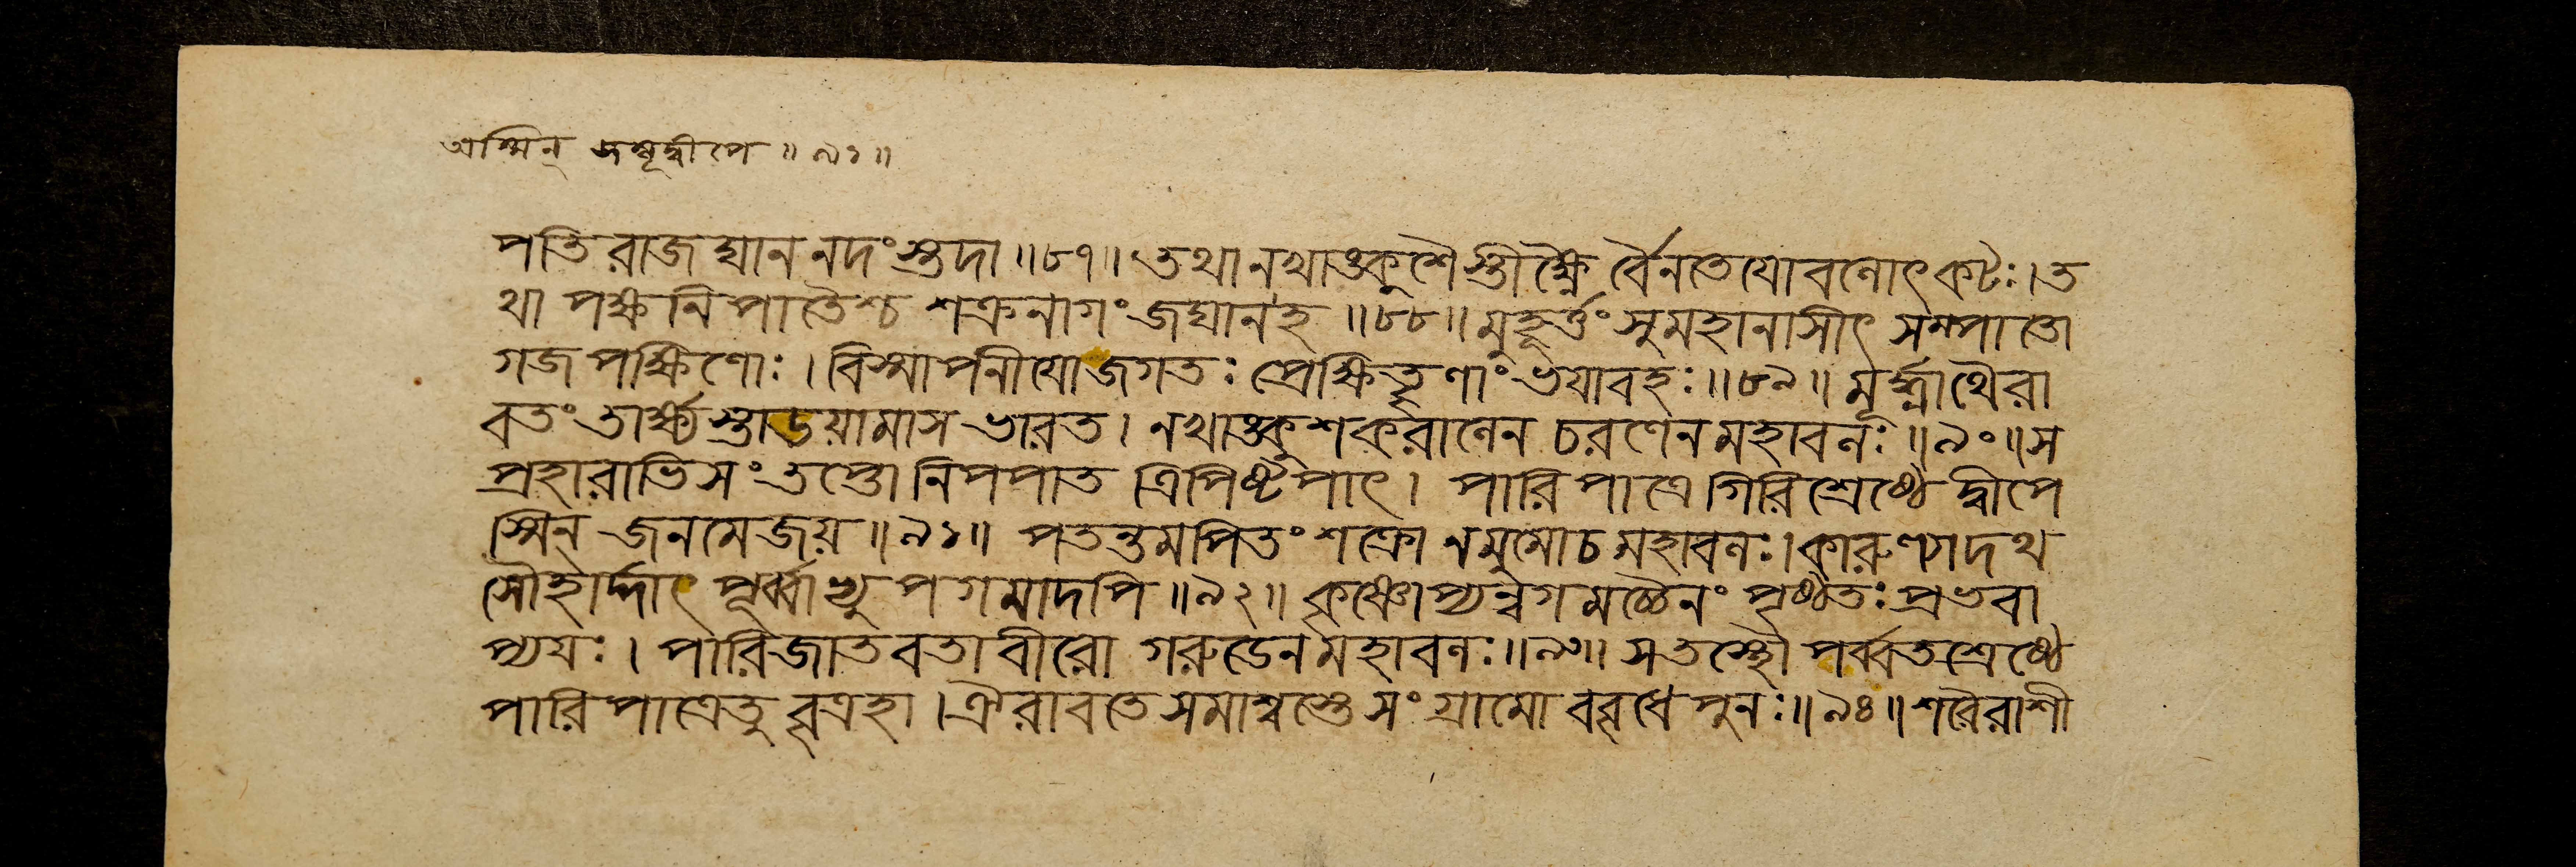 অস্মিন্ জম্বূদ্বীপে ॥ ৯১ ॥
পতি রাজঘান নদংস্তদা ॥ ৮৭ ॥ তথা নখাঙ্কুশৈস্তীক্ষ্ণৈর্বৈনতেযো বলোৎকটঃ । ত
থা পক্ষনিপাতৈশ্চ শক্রনাগং জঘান হ ॥ ৮৮ ॥ মুহূর্ত্তং সুমহানাসীৎ সম্পাতো
গজপক্ষিণোঃ । বিস্মাপনীযো জগতঃ প্রেক্ষিতৄণাং ভযাবহঃ ॥ ৮৯ ॥ মূর্দ্ধ্নাথৈরা
বতং তার্ক্ষ্যস্তাডয়ামাস ভারত । নখাঙ্কুশকরালেন চরণেন মহাবলঃ ॥ ৯০ ॥ স
প্রহারাভিসংতপ্তো নিপপাত ত্রিপিষ্টপাৎ । পারিপাত্রে গিরিশ্রেষ্ঠে দ্বীপে
স্মিন্ জনমেজয় ॥ ৯১ ॥ পতন্তমপি তং শক্রো ন মুমোচ মহাবলঃ । কারুণ্যাদথ
সৌহার্দ্দাৎ পূর্ব্বাভ্যুপগমাদপি ॥ ৯২ ॥ কৃষ্ণোপ্যন্বগমচ্চৈনং পৃষ্ঠতঃ প্রভবা
প্যযঃ । পারিজাতবতা বীরো গরুডেন মহাবলঃ ॥ ৯৩ ॥ স তস্থৌ পর্ব্বতশ্রেষ্ঠে
পারিপাত্রে তু বৃত্রহা । ঐরাবতে সমাশ্বস্তে সংগ্রামো ববৃধে পুনঃ ॥ ৯৪ ॥ শরৈরাশী